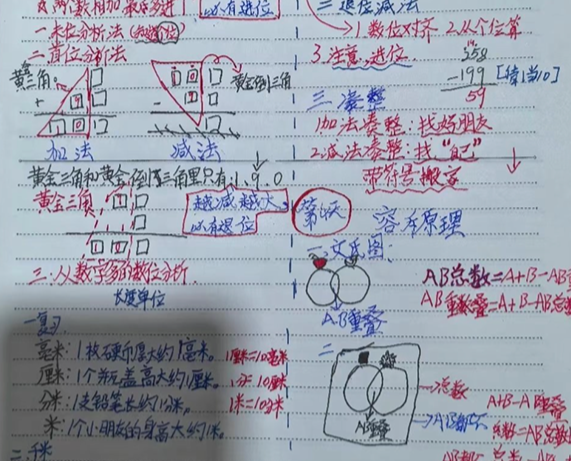 一.末位分析法
二.首位分析法
黄三角
加法
减法
黄金三角和黄金倒三角里只有1、9、0
黄金三角
越减越大
必有退位
三.从数字的数位分析
长度单位
一.复习
毫米:1枚硬币厚大约1毫米。1厘米=10毫米
厘米:1个瓶盖高大约1厘米。1分=10厘米
分米:1支铅笔长约1分米。1米=10分米
米:1个小朋友的身高大约1米。
二.千米
二退位减法
1数位对齐 2.从个位算
3.注意.退位
358
-199
59
[借1当10]
三.凑整
1加法凑整:找好朋友
2.减法凑整:找“自己”
带符号搬家
容斥原理
一.文氏图.
AB总数=A+B-AB重
AB重叠=A+B-AB总数
AB重叠
二
总数
AB重叠
A+B-A
总数=AB总数